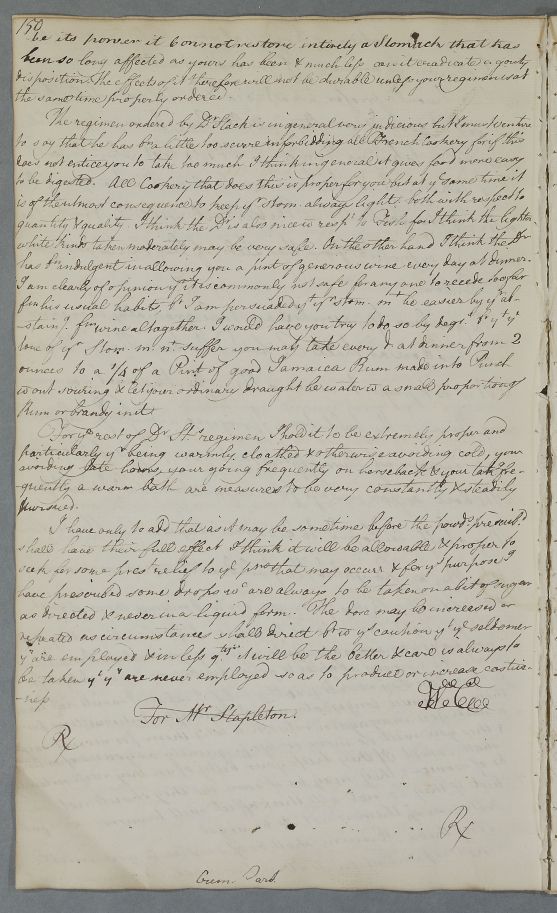 150
be its power it cannot restore intirely a Stomach that has
been so long affected as yours has been & much less can it eradicate a gouty
disposition. The effects of it therefore will not be durable unless your regimen is at
the same time properly ordered.
The regimen ordered by Dr Slack is in general very judicious but I must venture
to say that he has been a little too severe in forbidding all French Cookery for if this
does not entice you to take too much I think in general it gives food more easy
to be digested. All Cookery that does this is proper for you but at ye same time it
is of the utmost consequence to keep yr stom. always light both with respect to
quantity & quality. I think the Dr is also nice wt respt to Fish for I think the lighter
white kinds taken moderately may be very safe. On the other hand I think the Dr
has been indulgent in allowing you a pint of generous wine every day at dinner.
I am clearly of opinion yt it is commonly not safe for any one to recede too far
from his usual habits, but I am persuaded yt yr stom. mt be easier by yr ab-
-staing. from wine altogether. I would have you try to do so by degs. & yt ye
tone of yr Stom. mt nt suffer you may take every d. at dinner from 2
ounces to a 1/4 of a Pint of good Jamaica Rum made into Punch
wtout souring & let your ordinary draught be water wt a small proportion of
Rum or brandy in it
For ye rest of Dr Sts regimen I hold it to be extremely proper and
particularly yr being warmly cloathed & otherwise avoiding cold, your
avoiding late hours, your going frequently on horseback & your takg fre-
-quently a warm bath are measures to be very constantly & steadily
pursued.
I have only to add that as it may be sometime before the powds. prescribd.
shall have their full effect I think it will be allowable & proper to
seek for some prest relief to ye pns that may occur & for ys purpose I
have prescribed some drops wc are always to be taken on a bit of sugar
as directed & never in a liquid form. The dose may be increased or
repeated as circumstances shall direct but wt ys caution yt ye seldomer
yy are employed & in less qtys. it will be the better & care is always to
be taken yt yy are never employed so as to produce or increase costive-
-ness
For Mr Stapleton.
W.C.
Rx
Rx
Gum. Pard.